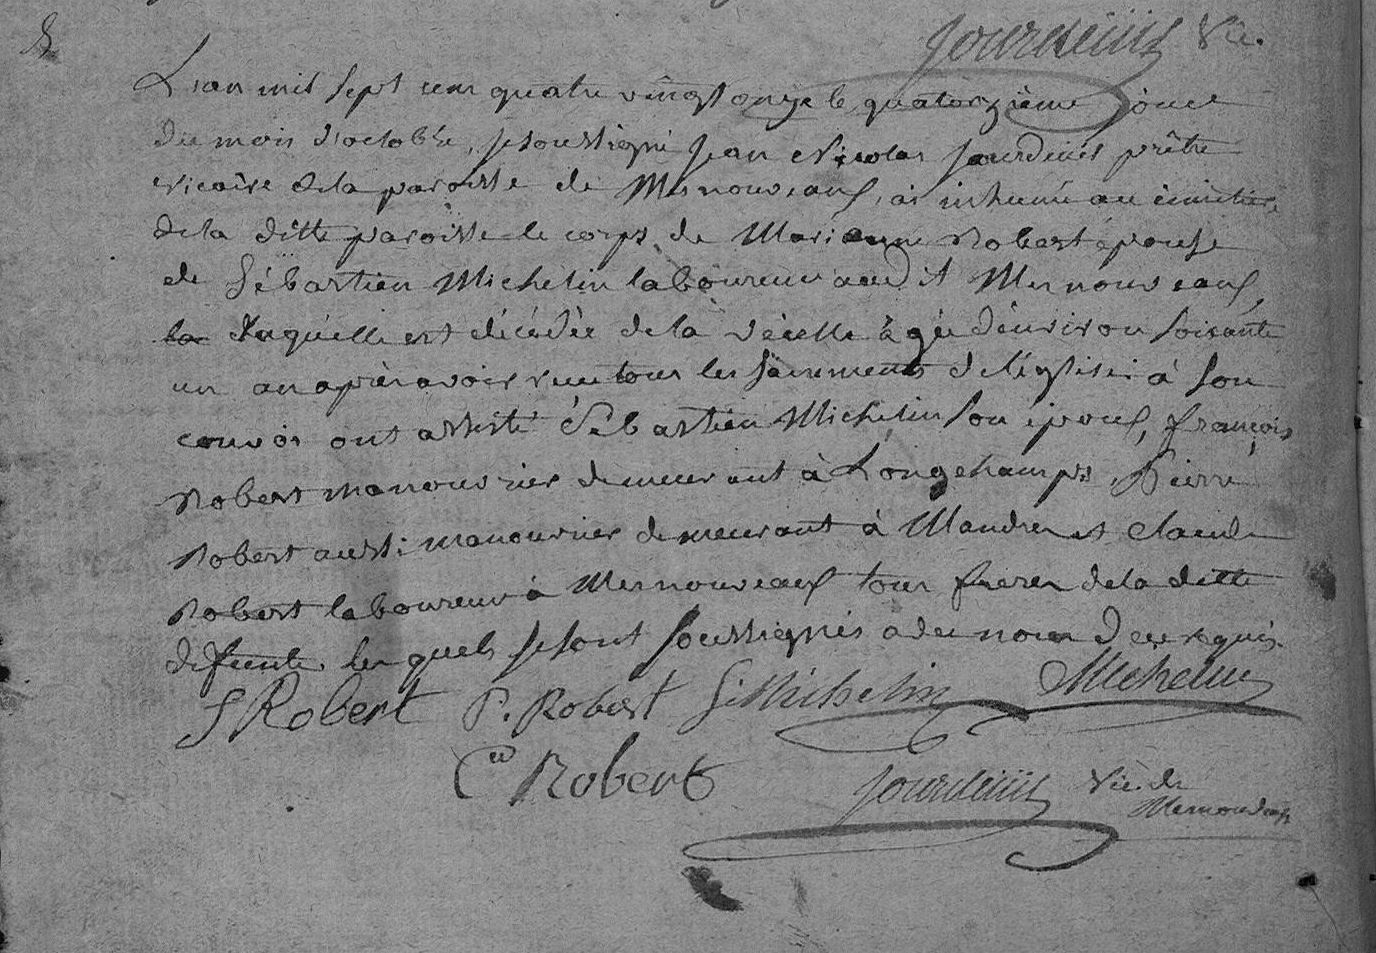 jourdeüil Vic.
L'an mil sept cent quatre vingt onze le quatorzième jour
du mois d'octobre, je soussigné jean Nicolas jourdeüil prêtre
vicaire de la paroisse de Mernouveaux, ai inhumé au cimetière
de la ditte paroisse le corps de Marianne Robert épouse
de Sébastien Michelin laboureur audit Mernouveaux,
la laquelle est décédée de la veille âgée d'environ soixante
un an après avoir reçu tous les sacrements de l'église. à son
convoi ont assisté Sébastien Michelin son époux, françois
Robert manouvrier demeurant à Longchamps, Pierre
Robert aussi manouvrier demeurant à Mandres et Claude
Robert laboureur à Mernouveaux tous freres de la ditte
defunte, lesquels se sont soussignés avec nous de ce requis.
f Robert P. Robert S Michelin Michelin
C Robert
jourdeüil Vic. de
Mernouveaux